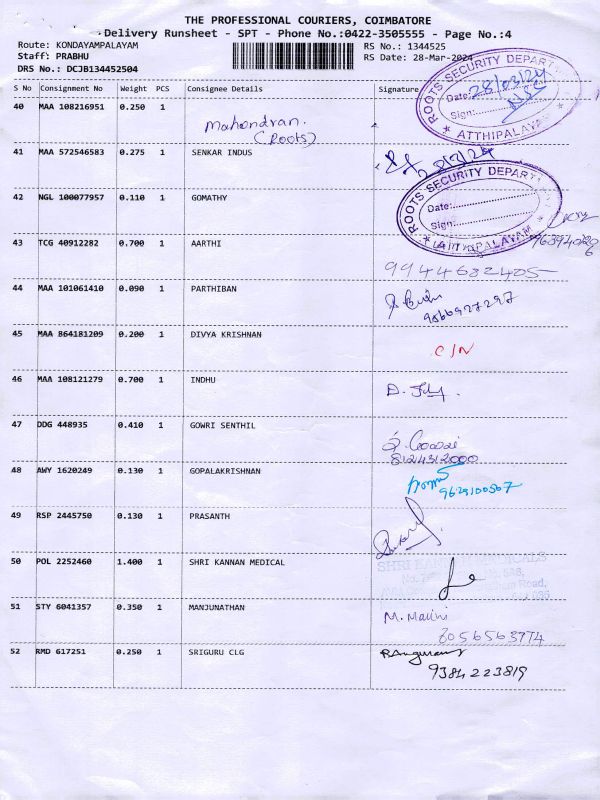 THE PROFESSIONAL COURIERS, COIMBATORE
Delivery Runsheet - SPT - Phone No.:0422-3505555 - Page No.:4
Route: KONDAYAMPALAYAM
Staff: PRABHU
DRS No.: DCJB134452504
RS No.: 1344525
RS Date: 28-Mar-2024
S No Consignment No Weight PCS Consignee Details Signature
40 MAA 108216951 0.250 1 Mahendran. (Roots)
ROOTS SECURITY DEPART
Date: 28/03/24
Sign:
★ ATTHIPALAYAM ★
41 MAA 572546583 0.275 1 SENKAR INDUS
28/3/24
42 NGL 100077957 0.110 1 GOMATHY
ROOTS SECURITY DEPART
Date:
Sign:
★ ATTHIPALAYAM ★
43 TCG 40912282 0.700 1 AARTHI
9944632405
44 MAA 101061410 0.090 1 PARTHIBAN
9566927297
45 MAA 864181209 0.200 1 DIVYA KRISHNAN C/N
46 MAA 108121279 0.700 1 INDHU
47 DDG 448935 0.410 1 GOWRI SENTHIL
8124312000
48 AWY 1620249 0.130 1 GOPALAKRISHNAN
9629100567
49 RSP 2445750 0.130 1 PRASANTH
50 POL 2252460 1.400 1 SHRI KANNAN MEDICAL
SHRI KANNAN MEDICALS
51 STY 6041357 0.350 1 MANJUNATHAN M. Malini
6056563774
52 RMD 617251 0.250 1 SRIGURU CLG
9384223819